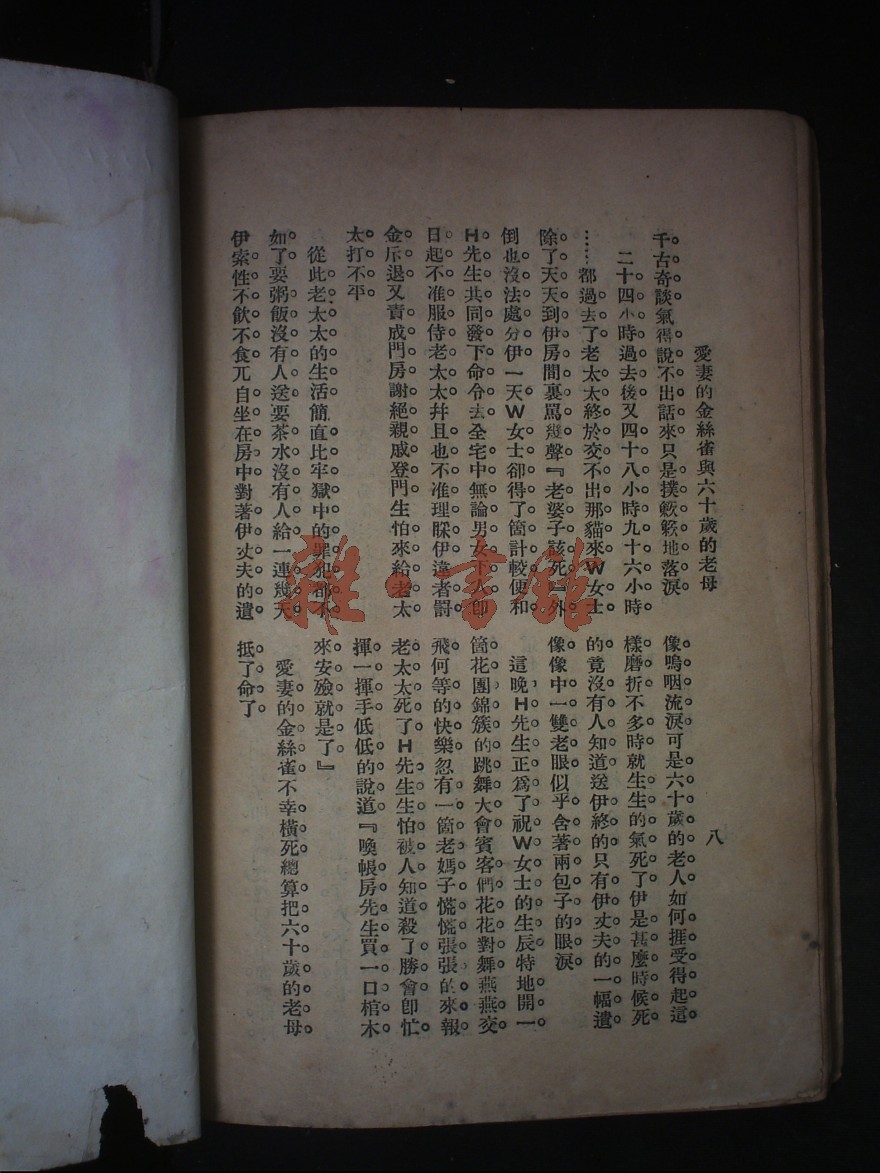 愛妻的金絲雀與六十歲的老母
八
千古奇談。氣得說不出話來。只是撲簌簌地落淚。
二十四小時過去後。又四十八小時。九十六小時。
……都過去了。老太太終於交不出那貓來。W女士
除了天天到伊房間裏罵幾聲『老婆子該死』外。
倒也沒法處分伊。一天。W女士卻得了箇計較。便和
H先生共同發下命令去。全宅中無論男女下人。即
日起不准服侍老太太。幷且也不准理睬伊。違者罰
金斥退。又責成門房謝絕親戚登門。生怕來給老太
太打不平。
從此老太太的生活。簡直比牢獄中的罪犯都不
如了。要粥飯沒有人送。要茶水沒有人給。一連幾天。
伊索性不飲不食。兀自坐在房中。對著伊丈夫的遺
像。嗚咽流淚。可是六十歲的老人。如何捱受得起這
樣磨折。不多時就生生的氣死了。伊是甚麼時候死
的。竟沒有人知道。送伊終的。只有伊丈夫的一幅遺
像。像中一雙老眼。似乎含著兩包子的眼淚。
這晚。H先生正爲了祝W女士的生辰。特地開一
箇花團錦簇的跳舞大會。賓客們花花對舞。燕燕交
飛。何等的快樂。忽有一箇老媽子慌慌張張的來報
老太太死了。H先生生怕被人知道。殺了勝會。即忙
揮一揮手。低低的說道。『喚帳房先生買一口棺木
來安殮就是了。』
愛妻的金絲雀不幸橫死。總算把六十歲的老母
抵了命了。
雜·書館